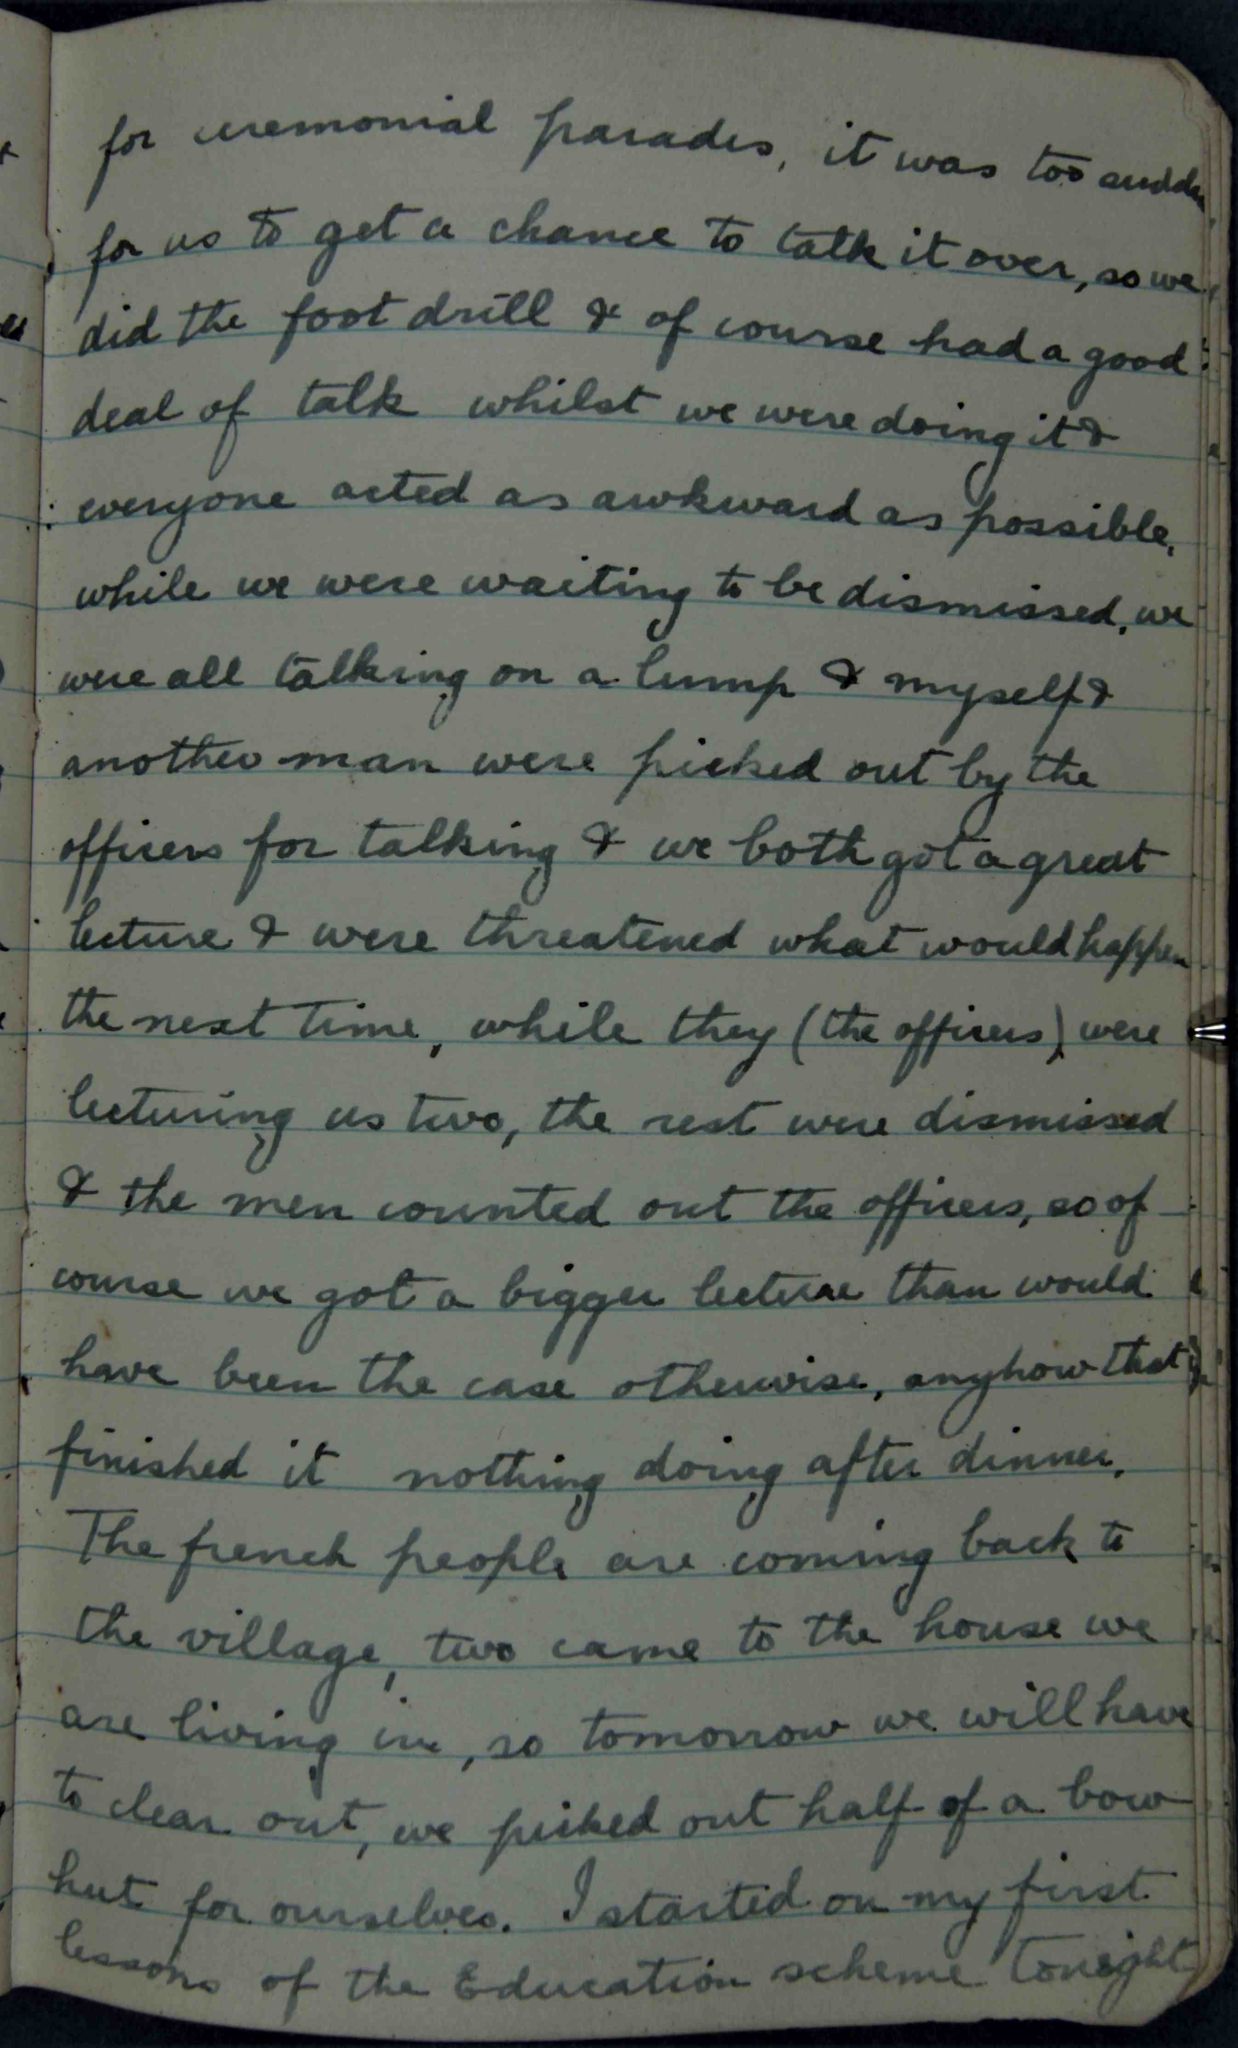 for ceremonial parades, it was too sudden
for us to get a chance to talk it over, so we
did the foot drill & of course had a good
deal of talk whilst we were doing it &
everyone acted as awkward as possible,
while we were waiting to be dismissed, we
were all talking on a lump & myself &
another man were picked out by the
officers for talking & we both got a great
lecture & were threatened what would happen
the next time, while they (the officers) were
lecturing us two, the rest were dismissed
& the men counted out the officers, so of
course we got a bigger lecture than would
have been the case otherwise, anyhow that
finished it nothing doing after dinner.
The french people are coming back to
the village, two came to the house we
are living in, so tomorrow we will have
to clear out, we picked out half of a bow
hut for ourselves. I started on my first
lessons of the Education scheme tonight